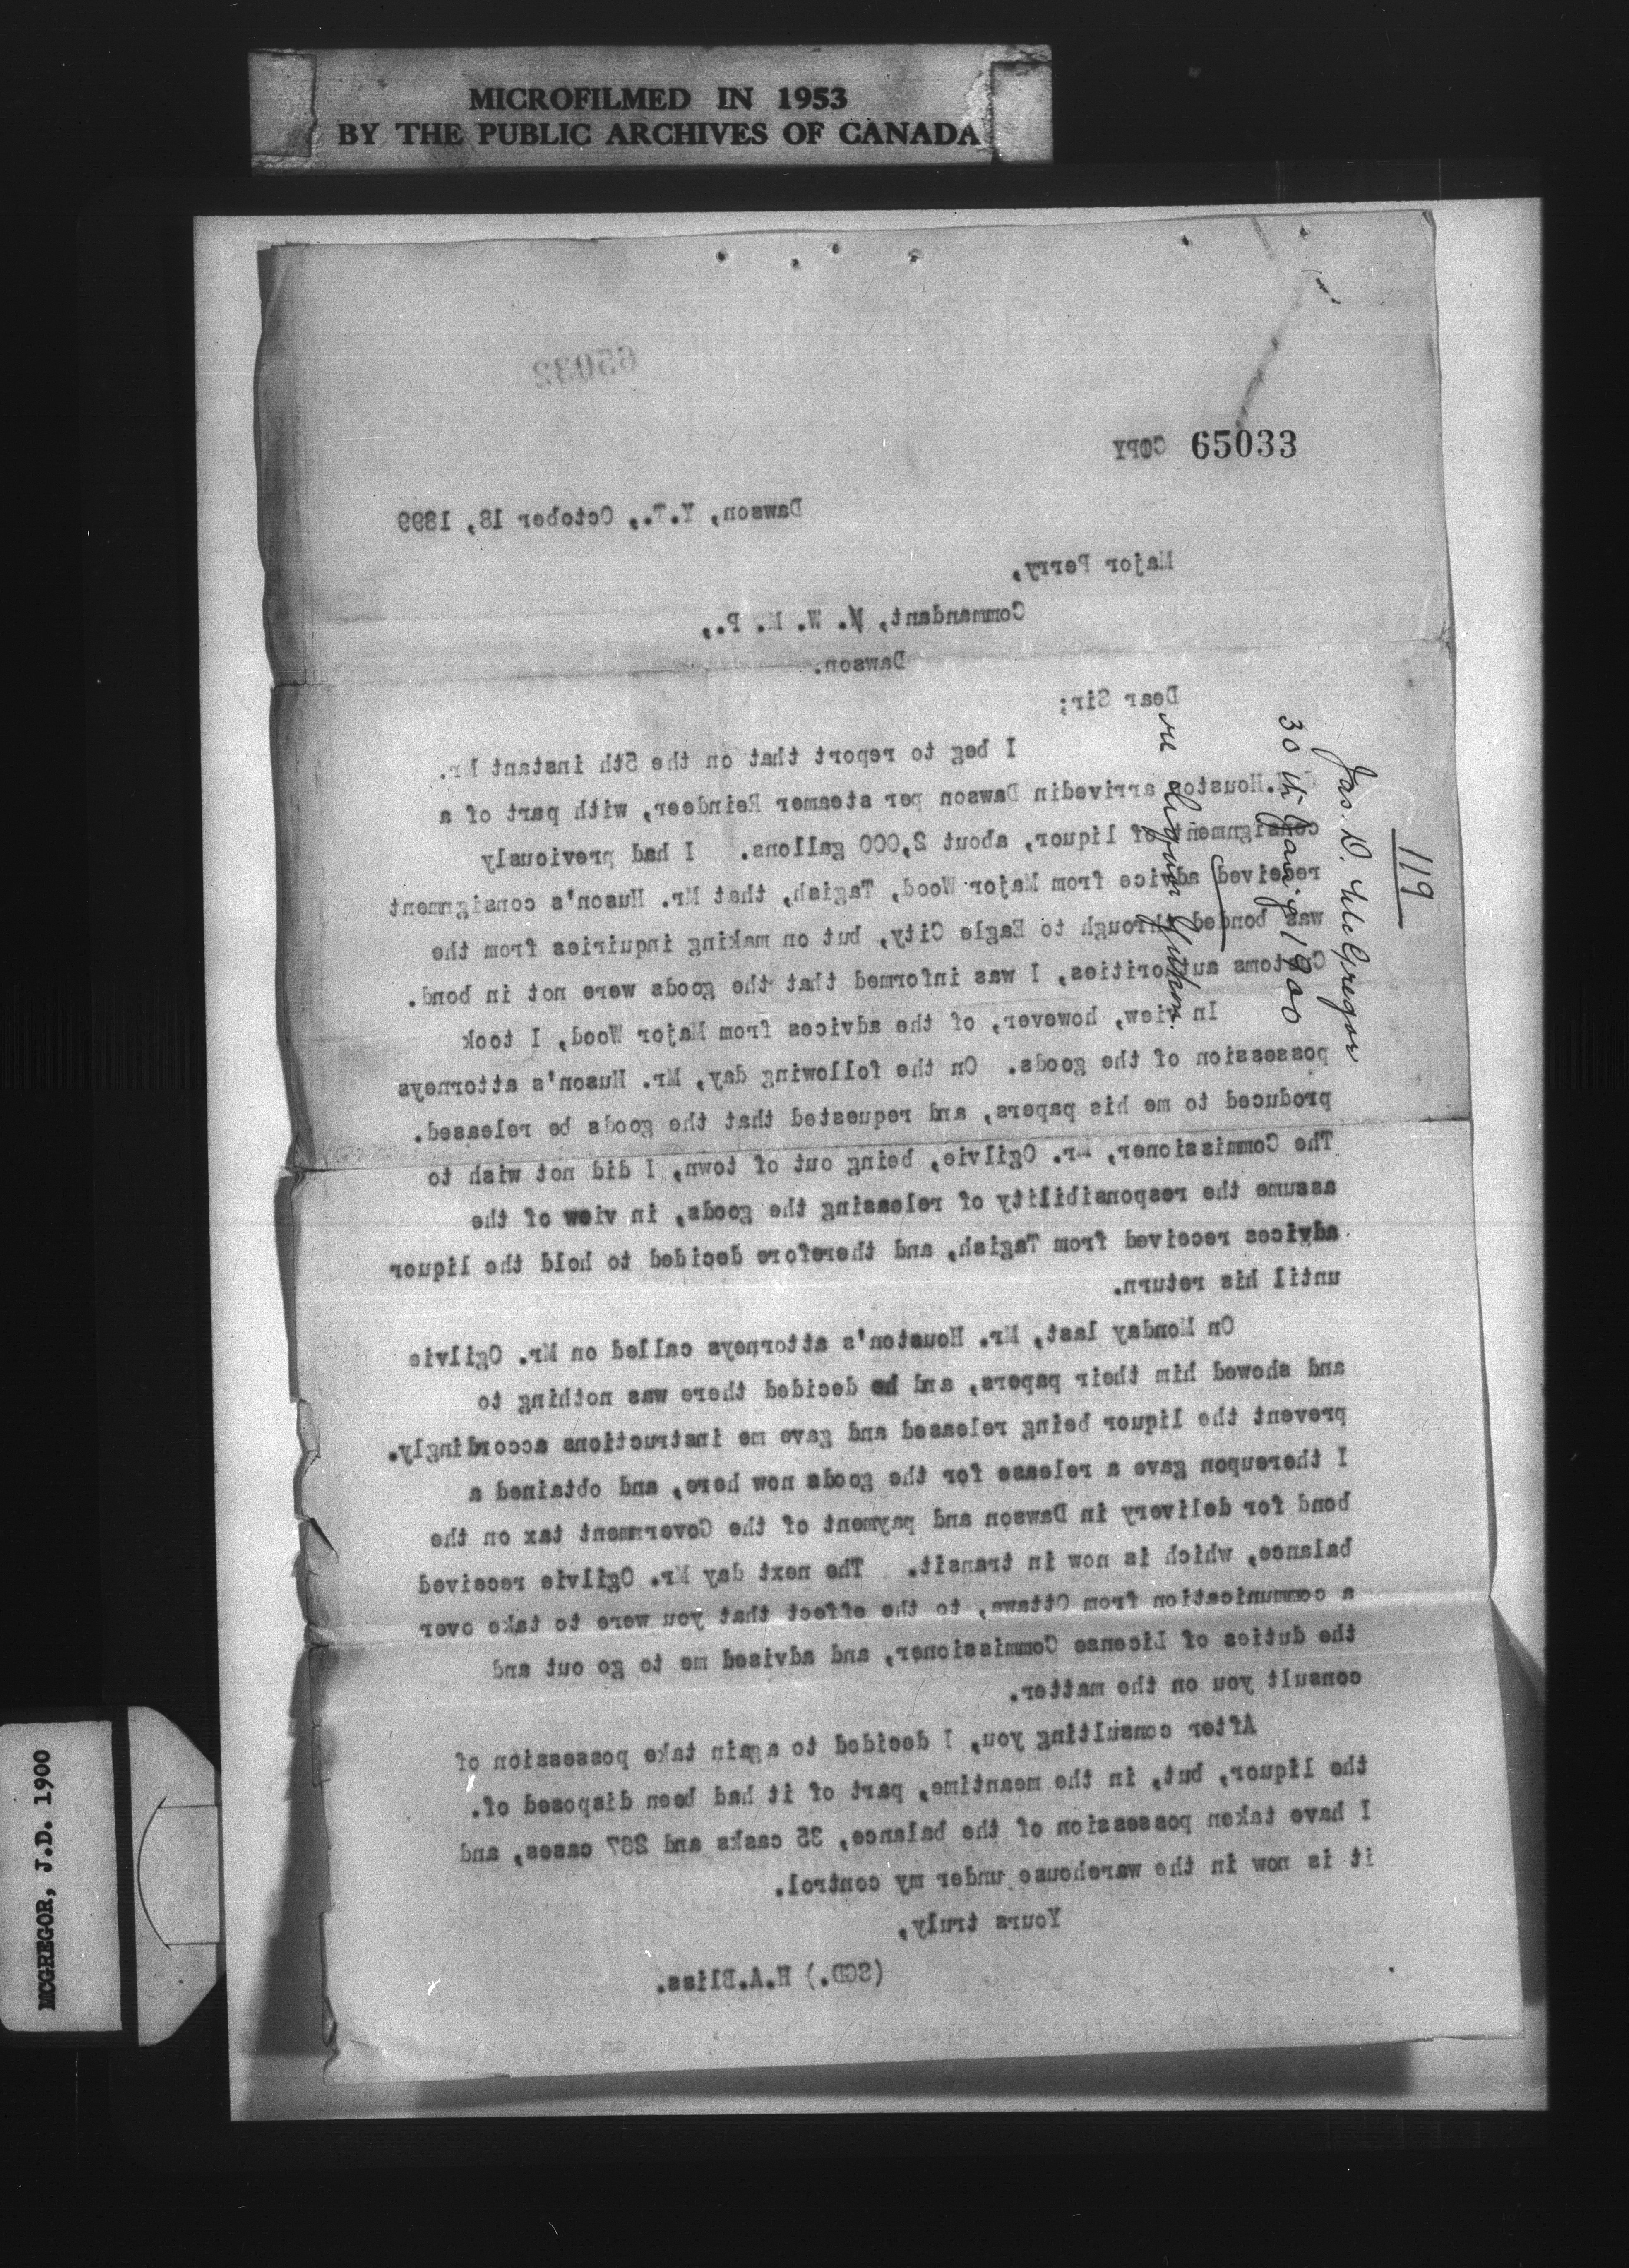 MICROFILMED IN 1953
BY THE PUBLIC ARCHIVES OF CANADA
65032
COPY 65033
Dawson, Y.T., October 18, 1899
Major Perry,
Commandant, N. W. M. P.,
Dawson.
Dear Sir;
I beg to report that on the 5th instant Mr.
.Houston arrivedin Dawson per steamer Reindeer, with part of a
consignment of liquor, about 2,000 gallons. I had previously
received advice from Major Wood, Tagish, that Mr. Huson's consignment
was bonded through to Eagle City, but on making inquiries from the
Customs authorities, I was informed that the goods were not in bond.
In view, however, of the advices from Major Wood, I took
possession of the goods. On the following day, Mr. Huson's attorneys
produced to me his papers, and requested that the goods be released.
The Commissioner, Mr. Ogilvie, being out of town, I did not wish to
assume the responsibility of releasing the goods, in view of the
advices received from Tagish, and therefore decided to hold the liquor
until his return.
On Monday last, Mr. Houston's attorneys called on Mr. Ogilvie
and showed him their papers, and he decided there was nothing to
prevent the liquor being released and gave me instructions accordingly.
I thereupon gave a release for the goods now here, and obtained a
bond for delivery in Dawson and payment of the Government tax on the
balance, which is now in transit. The next day Mr. Ogilvie received
a communication from Ottawa, to the effect that you were to take over
the duties of License Commissioner, and advised me to go out and
consult you on the matter.
After consulting you, I decided to again take possession of
the liquor, but, in the meantime, part of it had been disposed of.
I have taken possession of the balance, 35 casks and 267 cases, and
it is now in the warehouse under my control.
Yours truly,
(SGD.) H.A.Bliss.
119
Jas. D. McGregor
30th Jany 1900
re Liquor Yukon.
MCGREGOR, J.D. 1900